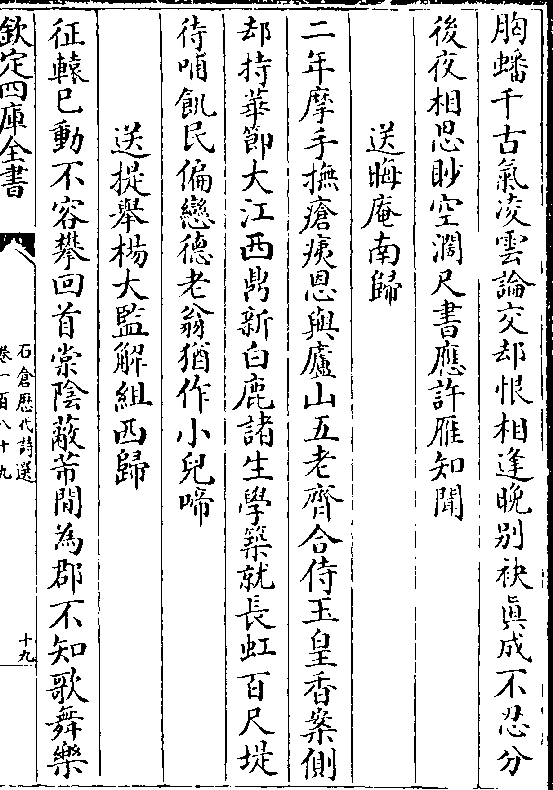 胸蟠千古氣凌雲論交却恨相逢晚别袂真成不忍分
後夜相思眇空濶尺書應許雁知聞
送晦庵南歸
二年摩手撫瘡痍恩與廬山五老齊合侍玉皇香案側
却持華節大江西鼎新白鹿諸生學築就長虹百尺堤
待哺飢民偏戀德老翁猶作小兒啼
送提舉楊大監解組西歸
征轅已動不容攀回首棠陰蔽芾間為郡不知歌舞樂
欽定四庫全書
石倉歷代詩選
卷一百八十九
十九